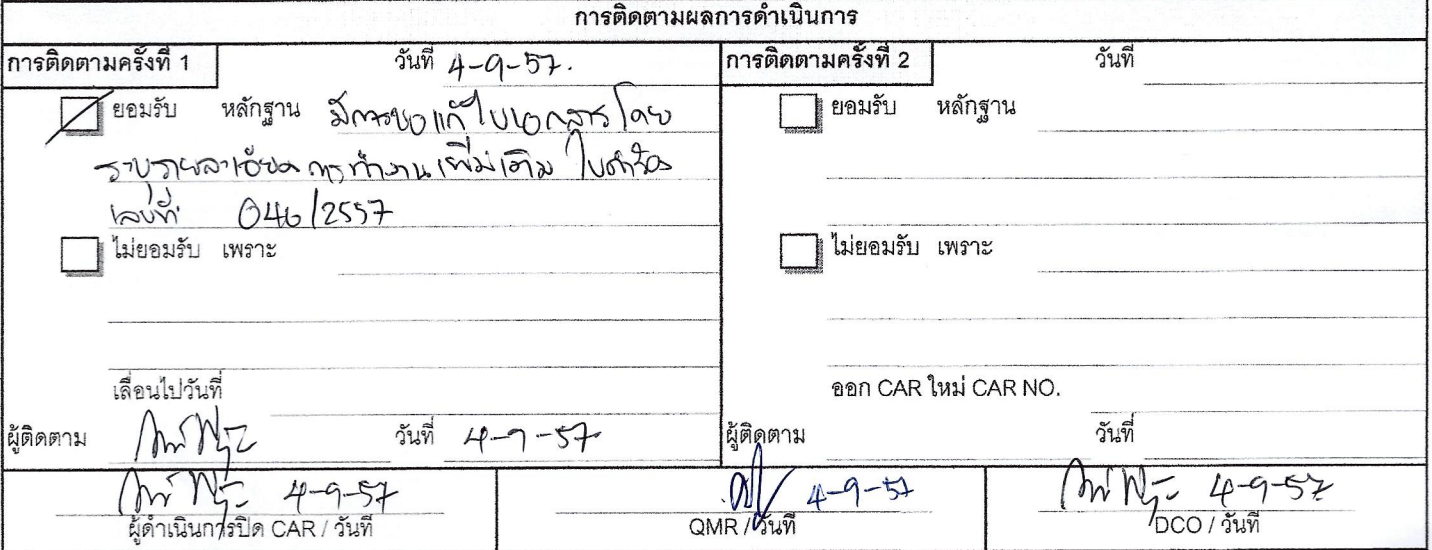 การติดตามผลการดำเนินการ
การติดตามครั้งที่ 1 วันที่ 4-9-57.
ยอมรับ หลักฐาน มีการขอแก้ไขเอกสารโดย
ระบุรายละเอียดการทำงานเพิ่มเติม ใบคำร้อง
เลขที่ 046/2557
ไม่ยอมรับ เพราะ
เลื่อนไปวันที่
ผู้ติดตาม วันที่ 4-9-57
การติดตามครั้งที่ 2 วันที่
ยอมรับ หลักฐาน
ไม่ยอมรับ เพราะ
ออก CAR ใหม่ CAR NO.
ผู้ติดตาม วันที่
4-9-57
ผู้ดำเนินการปิด CAR / วันที่
4-9-57
QMR / วันที่
4-9-57
DCO / วันที่